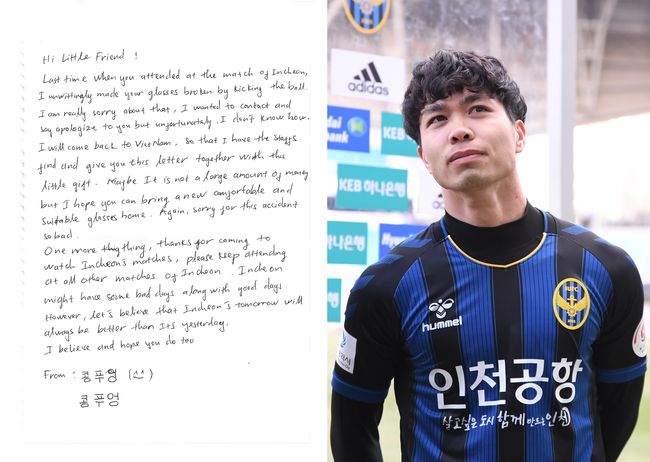 Hi Little Friend !
Last time when you attended at the match of Incheon,
I unwittingly made your glasses broken by kicking the ball.
I am really sorry about that, I wanted to contact and
say apologize to you but unfortunately. I don't know how.
I will come back to VietNam, so that I have the staffs
find and give you this letter together with this
little gift. Maybe It is not a large amount of money
but I hope you can bring a new comfortable and
suitable glasses home. Again, sorry for this accident
so bad.
One more thing, thanks for coming to
watch Incheon's matches, please keep attending
at all other matches of Incheon. Incheon
might have some bad days along with good days.
However, let's believe that Incheon's tomorrow will
always be better than its yesterday.
I believe and hope you do too
From : 콩푸엉 (^^)
콩푸엉
adidas
KEB
KEB 하나은행
하나은행
hummel
인천공항
살고싶은 도시 함께 만드는 인천